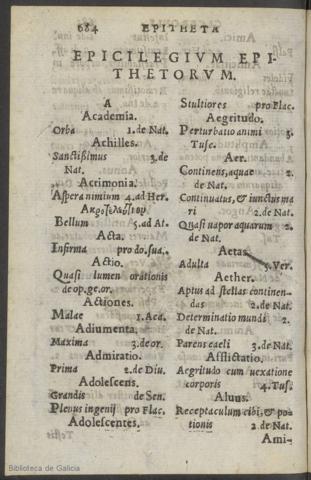 684 EPITHETA
EPICILEGIVM EPI-
THETORVM.
A
Academia.
Orba 1.de Nat.
Achilles.
Sanctißimus 3.de
Nat.
Acrimonia.
Aspera nimium 4.ad Her.
Bellum 5.ad At.
Acta.
Infirma pro do.sua.
Actio.
Quasi lumen orationis
de op.ge.or.
Actiones.
Malae 1.Aca.
Adiumenta.
Maxima 3.de or.
Admiratio.
Prima 2.de Diu.
Adolescens.
Grandis de Sen.
Plenus ingenij pro Flac.
Adolescentes.
Stultiores pro Flac.
Aegritudo.
Perturbatio animi 3.
Tusc.
Aer.
Continens, aquae 2.
de Nat.
Continuatus, & iunctus ma
ri 2.de Nat.
Quasi vapor aquarum 2.
de Nat.
Aetas.
Adulta 5.Ver.
Aether.
Aptus ad stellas continen-
das 2.de Nat.
Determinatio mundi 2.
de Nat.
Parens caeli 3.de Nat.
Afflictatio.
Aegritudo cum uexatione
corporis 4.Tus.
Aluus.
Receptaculum cibi, & po-
tionis 2.de Nat.
Ami-
Biblioteca de Galicia